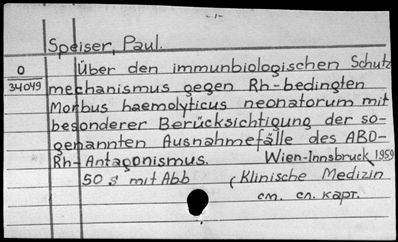 -1-
Speiser, Paul.
O
34049
Über den immunbiologischen Schutz
mechanismus gegen Rh-bedingten
Morbus haemolyticus neonatorum mit
besonderer Berücksichtigung der so-
genannten Ausnahmefälle des ABO-
Rh-Antagonismus. Wien-Innsbruck, 1959
50 s mit Abb (Klinische Medizin
см. сл. карт.